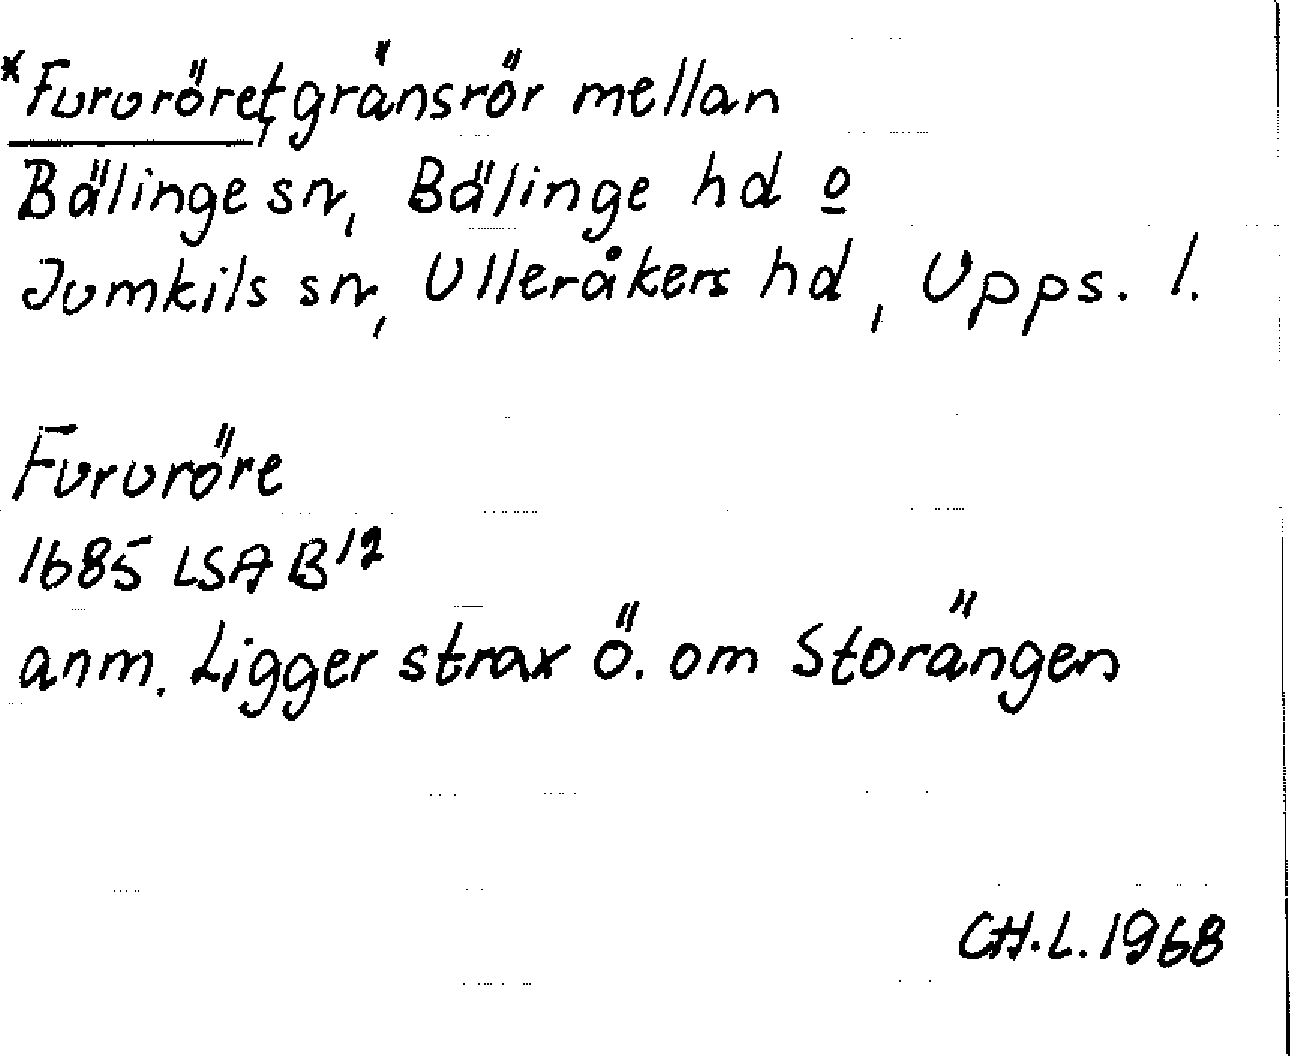 *Fururöret, gränsrör mellan
Bälinge sn, Bälinge hd o
Jumkils sn, Ulleråkers hd, Upps. l.
Fururöre
1685 LSA B 17
anm. Ligger strax ö. om Storängen
CH.L. 1968